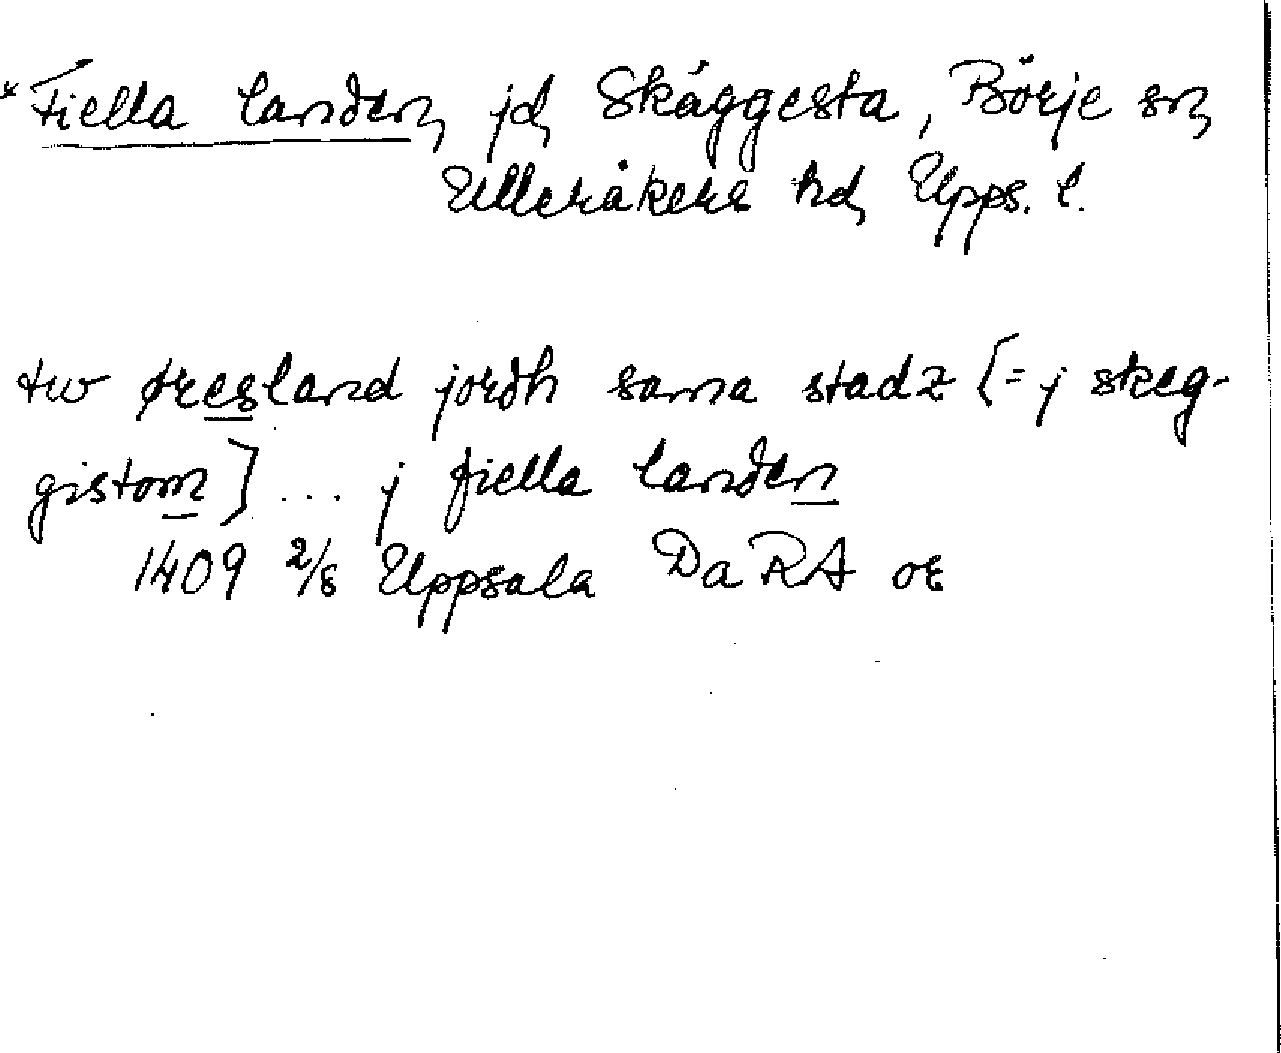 * Fiella landen, jd, Skäggesta, Börje sn,
Ulleråkers hd, Upps. l.
tw øresland jordh sama stadz [= j skeg-
gistom] ... j fiella landen
1409 2/8 Uppsala DaRA or